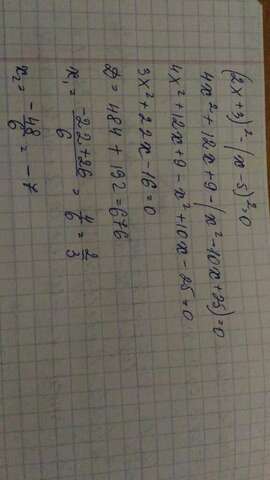 (2x+3)²-(x-5)²=0
4x²+12x+9-(x²-10x+25)=0
4x²+12x+9-x²+10x-25=0
3x²+22x-16=0
D=484+192=676
x₁=(-22+26)/6=4/6=2/3
x₂=-48/6=-7